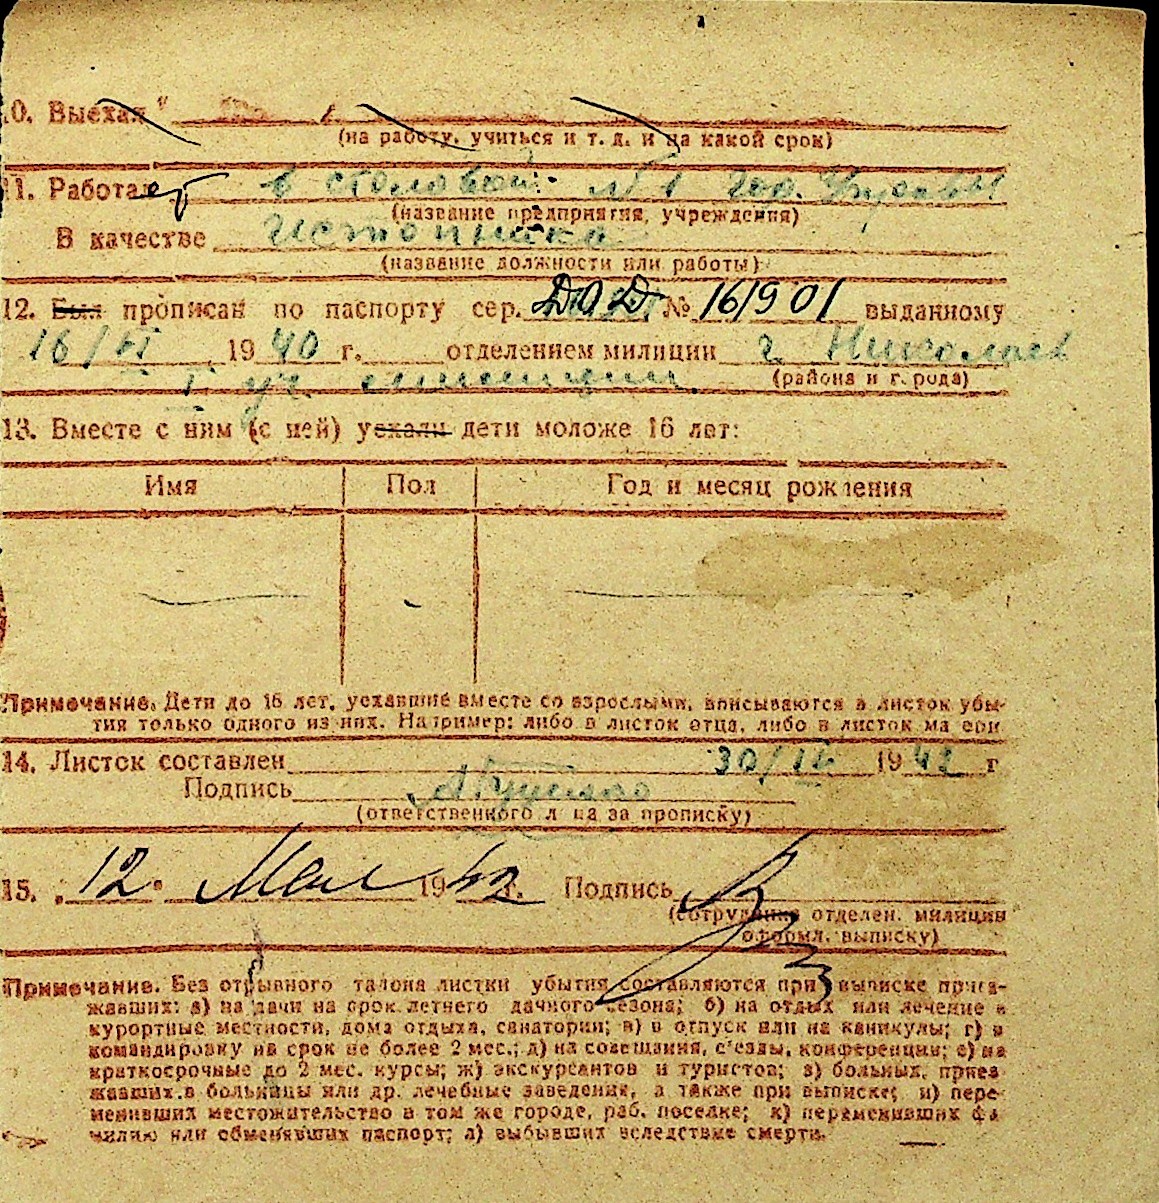 10. Выехал "
(на работу, учиться и т. д. и на какой срок)
11. Работает в столовой № 1 гор. Управы
(название предприятия, учреждения)
В качестве истопника
(название должности или работы)
12. Был прописан по паспорту сер. № 161901 выданному
16/VI 1940 г. отделением милиции г. Николаев
(района и города)
I уч милиции
13. Вместе с ним (с ней) уехали дети моложе 16 лет:
Имя Пол Год и месяц рождения
Примечание. Дети до 16 лет, уехавшие вместе со взрослыми, вписываются в листок убы-
тия только одного из них. Например: либо в листок отца, либо в листок матери
14. Листок составлен 30/IV 1942 г
Подпись
(ответственного лица за прописку)
15. "12" Мая 1942 г. Подпись
(сотрудника отделен. милиции
оформл. выписку)
Примечание. Без отрывного талона листки убытия составляются при выписке приез-
жавших: а) на дачи на срок летнего дачного сезона; б) на отдых или лечение в
курортные местности, дома отдыха, санатории; в) в отпуск или на каникулы; г) в
командировку на срок не более 2 мес.; д) на совещания, с'езды, конференции; е) на
краткосрочные до 2 мес. курсы; ж) экскурсантов и туристов; з) больных, приез
жавших в больницы или др. лечебные заведения, а также при выписке; и) пере-
менивших местожительство в том же городе, раб. поселке; к) переменивших фа
милию или обменявших паспорт; л) выбывших вследствие смерти.